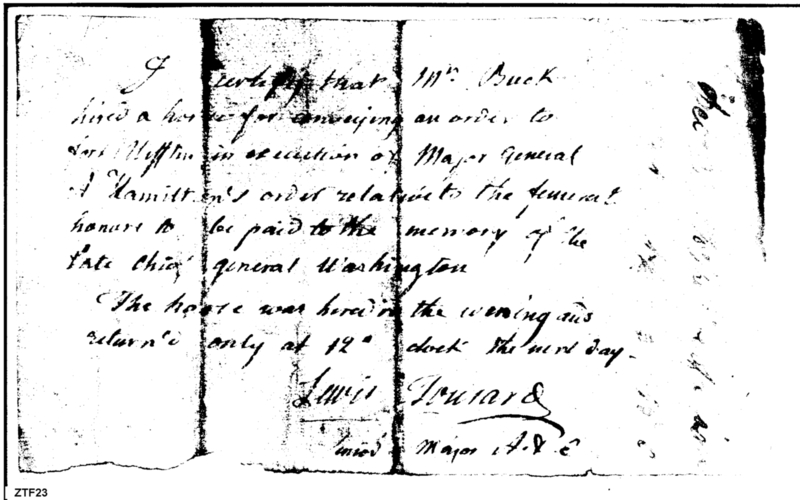 I certify that Mr. Buck
hired a horse for conveying an order to
fort Mifflin in execution of Major General
A Hamilton's order relative to the funeral
honors to be paid to the memory of the
late Chief general Washington
The horse was hired in the evening and
return'd only at 12 o clock the next day.
Lewis Tousard
Major A & E
ZTF23